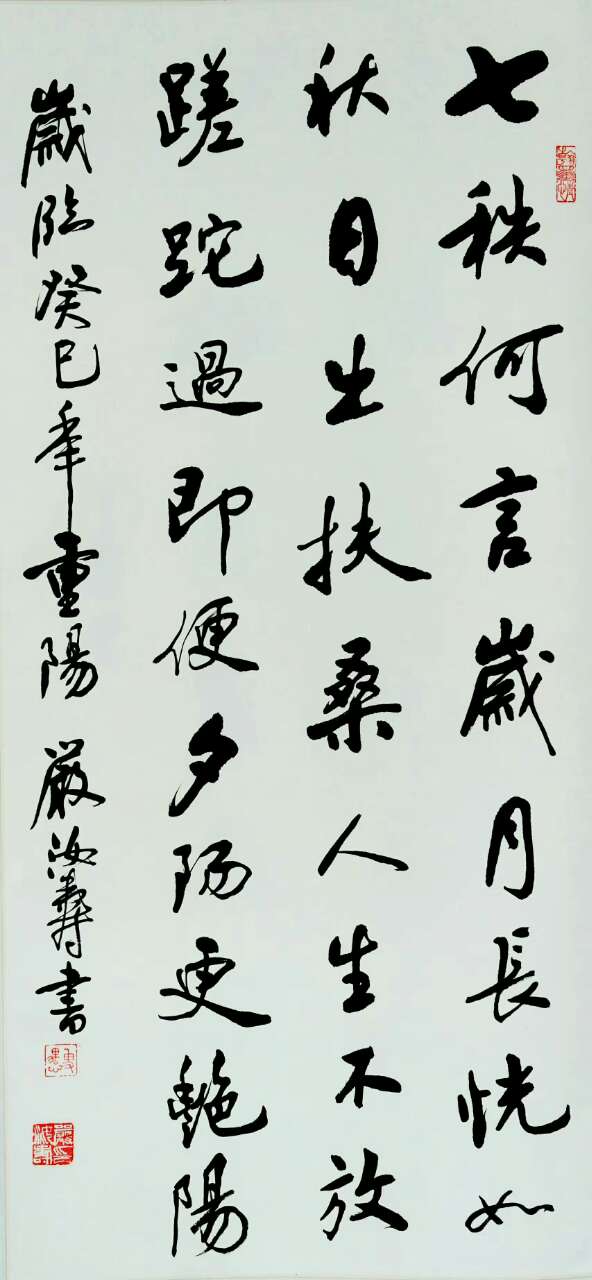 七秩何言歲月長恍如
秋日出扶桑人生不放
蹉跎過即便夕陽更艷陽
歲臨癸巳年重陽 嚴汝壽書